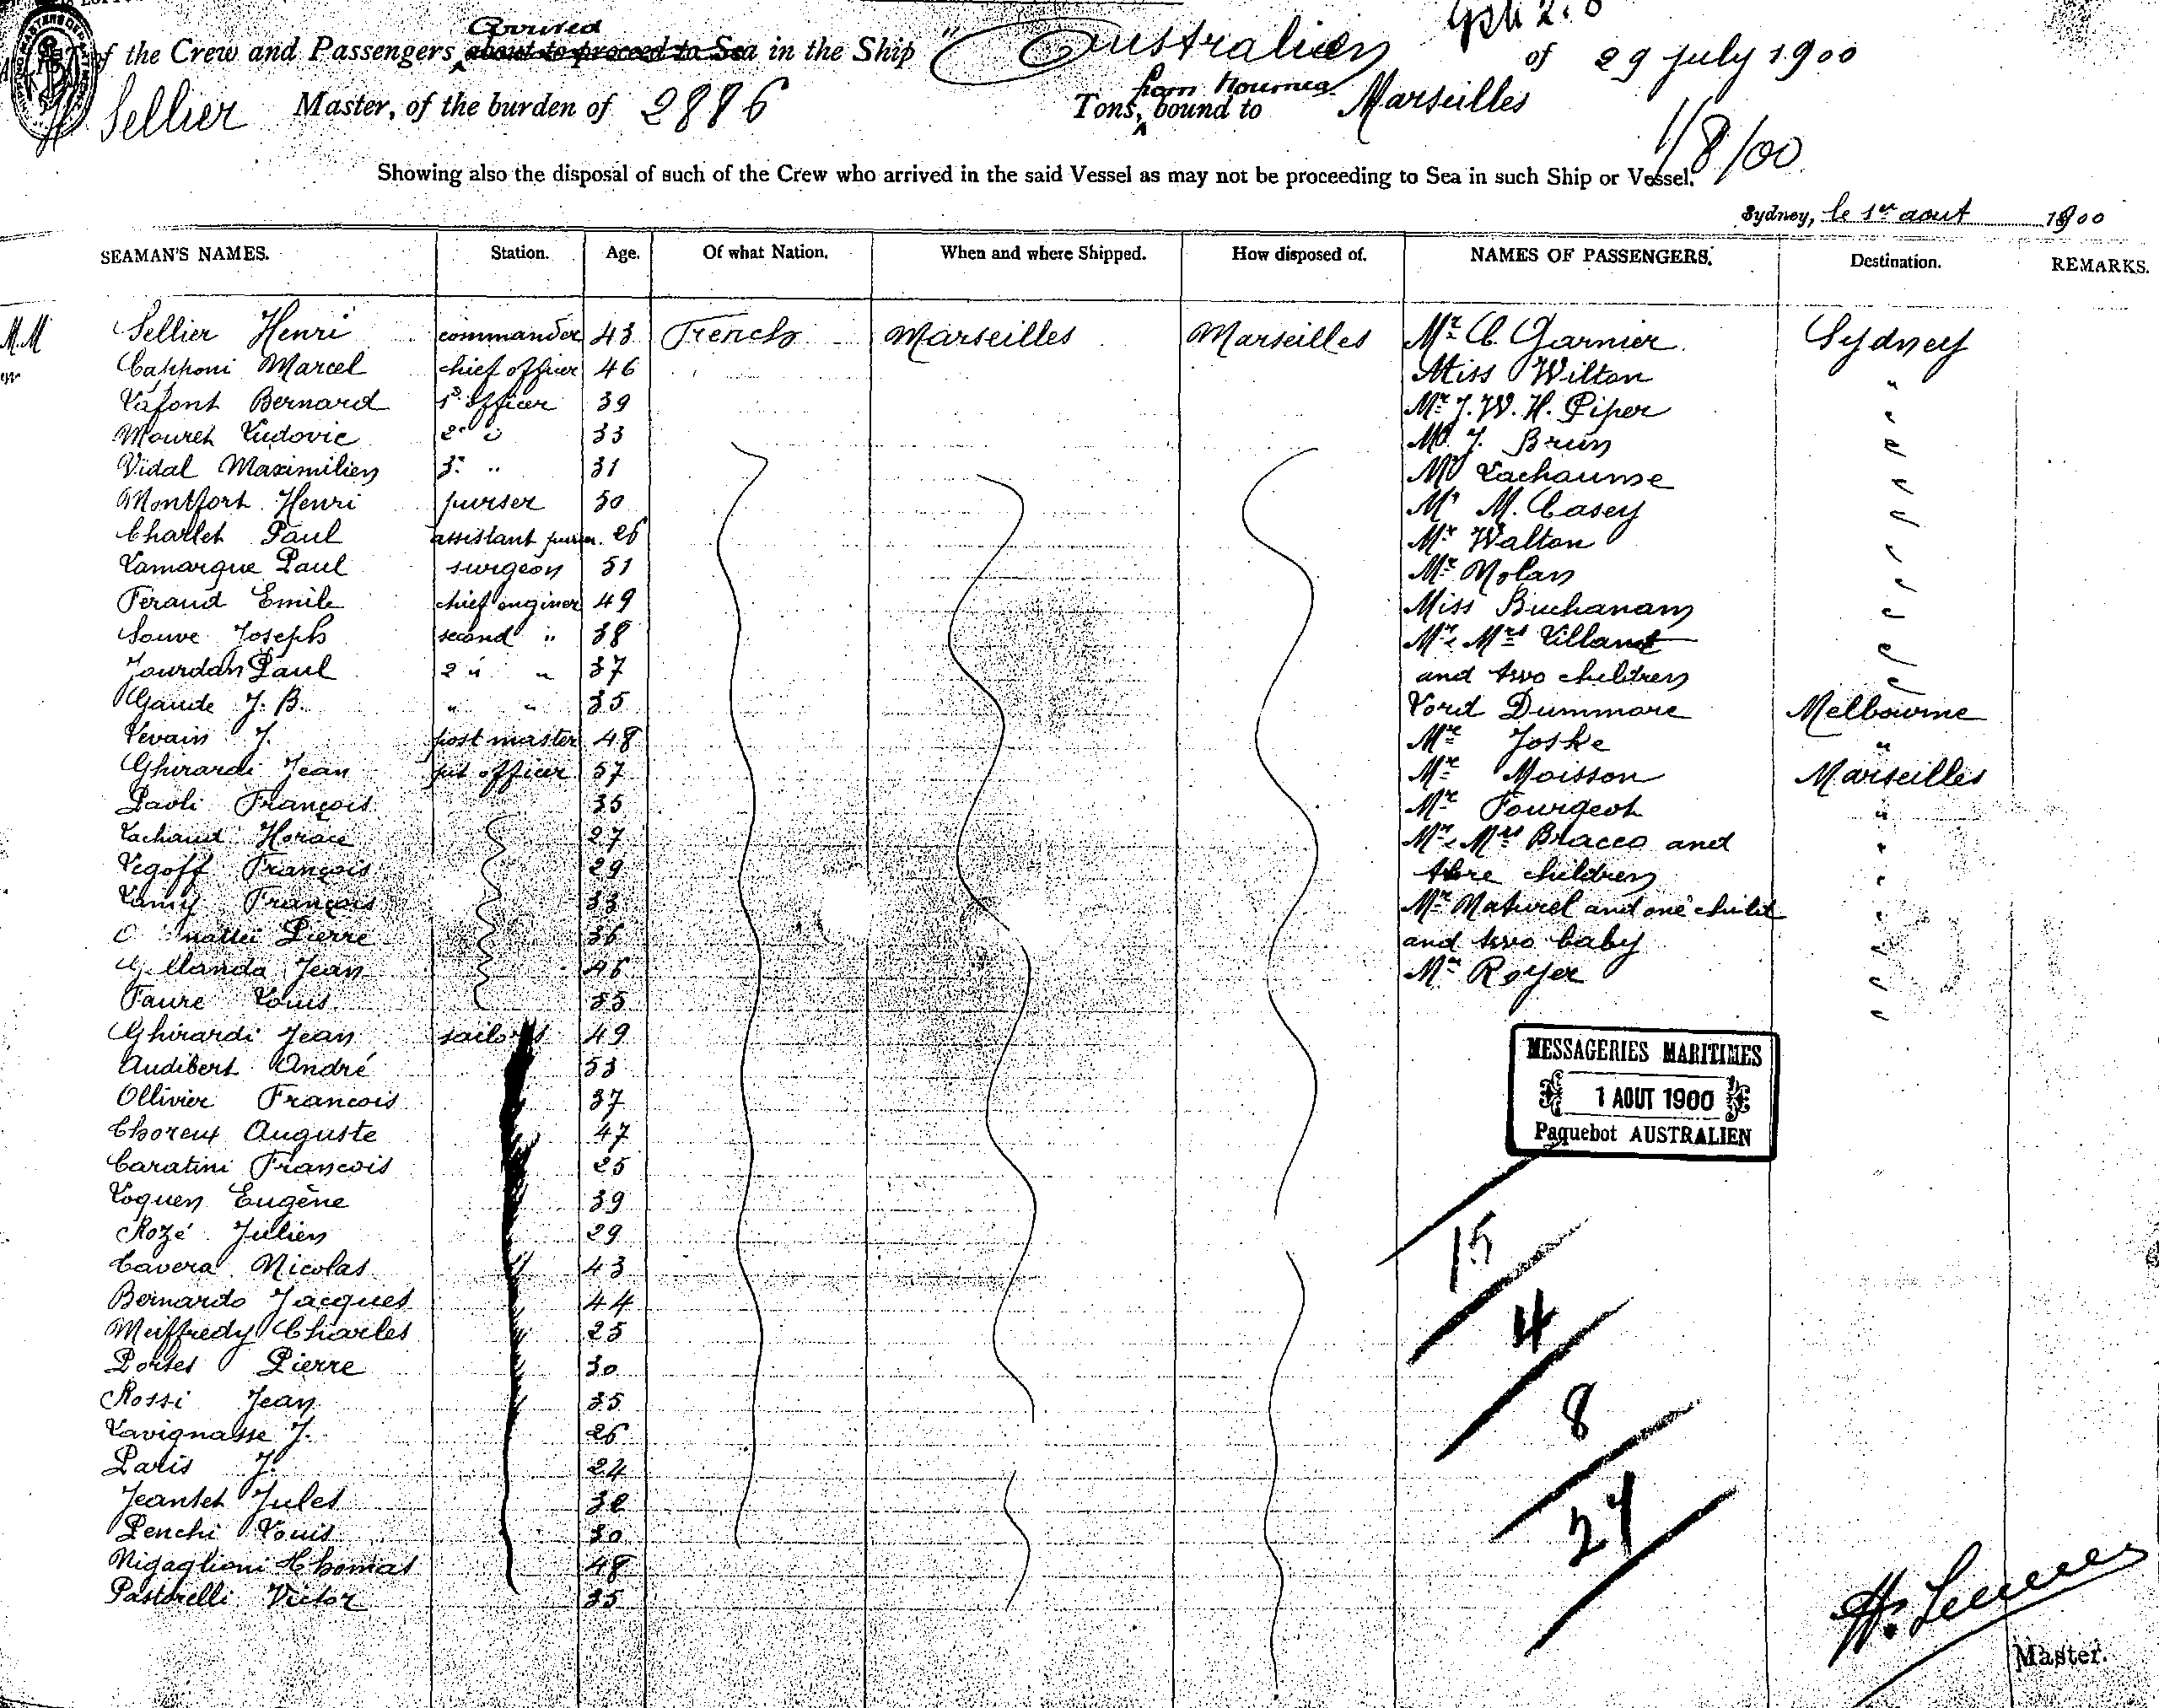 of the Crew and Passengers Arrived about to proceed to Sea in the Ship "Australien of 29 July 1900
H Sellier Master, of the burden of 2886 Tons, from Noumea bound to Marseilles
1/8/00
Showing also the disposal of such of the Crew who arrived in the said Vessel as may not be proceeding to Sea in such Ship or Vessel.
Sydney, le 1er aout 1900
SEAMAN'S NAMES. Station. Age. Of what Nation. When and where Shipped. How disposed of. NAMES OF PASSENGERS. Destination. REMARKS.
M.M Sellier Henri commander 43 French Marseilles Marseilles Mr C. Garnier Sydney
Capponi Marcel chief officer 46 Miss Wilton "
Lafont Bernard officer 39 Mr J. W. H. Piper "
Mouret Ludovic 2 " 33 J. Brun "
Vidal Maximilien 3 " 31 Mr Lachaume "
Montfort Henri purser 50 Mr M. Casey "
Charlet Paul assistant purser 26 Mr Walton "
Lamarque Paul surgeon 51 Mr Nolan "
Feraud Emile chief enginer 49 Miss Buchanam "
Souve Joseph second " 38 Mr & Mrs Villand "
Jourdan Paul 2 " " 37 and two children "
Gaude J. B. " " 35 Lord Dummore Melbourne
Levain J. post master 48 Mr Joske "
Ghirardi Jean pit officer 57 Mr Moisson Marseilles
Paoli François 35 Mr Fourgeot "
Lachaud Horace 27 Mr & Mrs Bracco and "
Legoff François 29 thre children "
Lamy François 33 Mr Naturel and one child "
Pierre 36 and two baby "
Jean 46 Mr Royer "
Faure Louis 35 "
Ghirardi Jean sailors 49
Audibert André 53
Ollivier Francois 37
Choreux Auguste 47
Caratini Francois 25
Loquen Eugène 39
Rozé Julien 29
Cavera Nicolas 43
Bernardo Jacques 44
Muffredy Charles 25
Portes Pierre 30
Rossi Jean 35
Lavignasse J. 26
Paris J. 24
Jeantet Jules 32
Penchi Louis 30
Nigaglioni Thomas 48
Pastorelli Victor 35
MESSAGERIES MARITIMES
1 AOUT 1900
Paquebot AUSTRALIEN
15
4
8
27
Master.